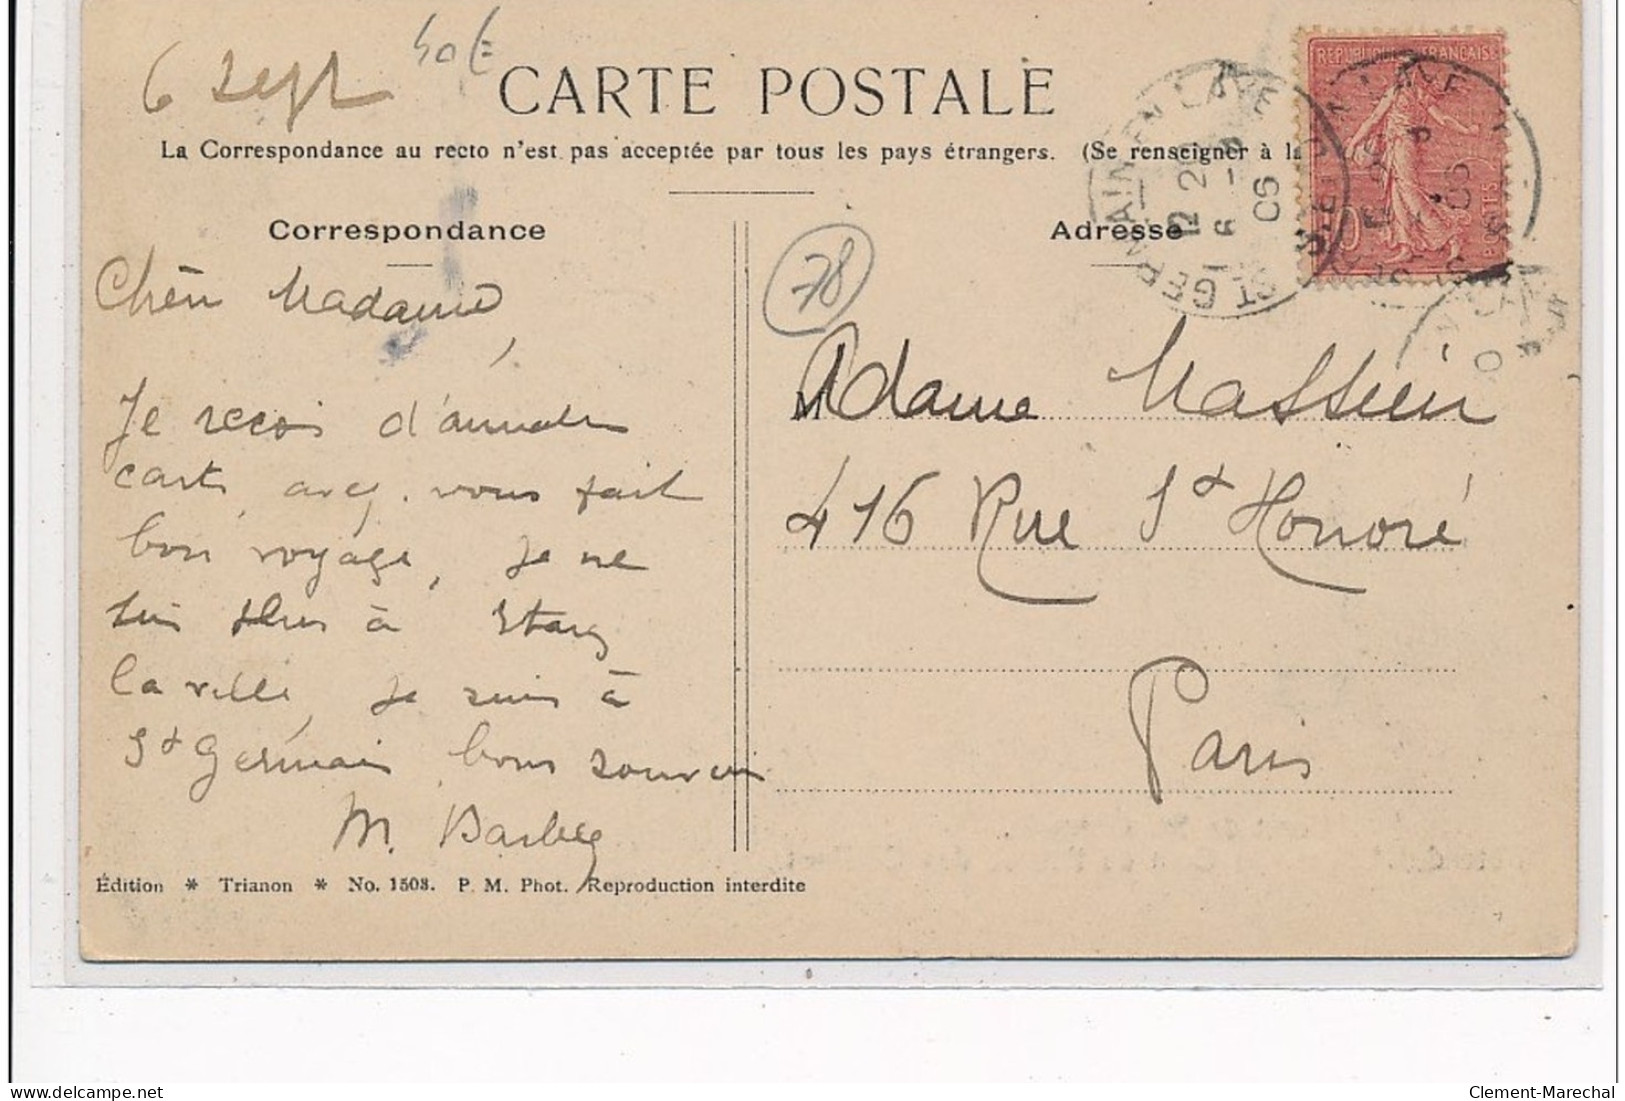 6 Sept
50E
CARTE POSTALE
La Correspondance au recto n'est pas acceptée par tous les pays étrangers. (Se renseigner à la
REPUBLIQUE FRANCAISE
POSTES
ST GERMAIN EN LAYE
12 20
6 - 9
05
Correspondance
Adresse
78
Chère Madame
Je reçois
carte, vous fait
bon voyage, je ne
suis plus à
la ville, je suis à
St Germain bons souvenirs
M. Barbey
Madame Massieu
416 Rue St Honoré
Paris
Édition * Trianon * No. 1508. P. M. Phot. Reproduction interdite
Clement-Marechal